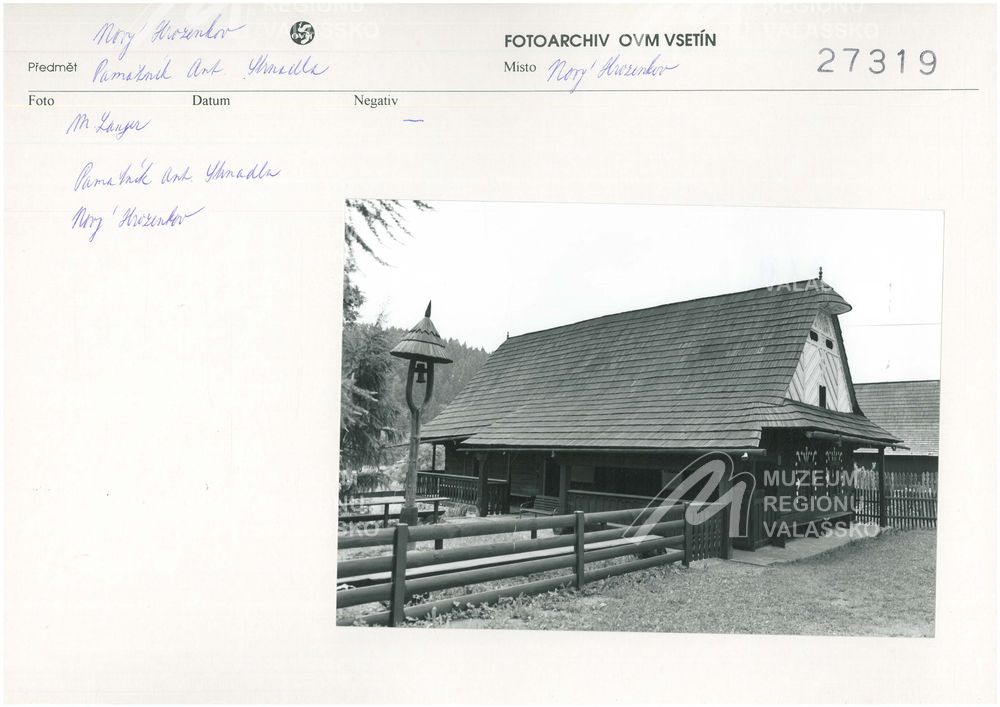 REGIONU
VALAŠSKO
REGIONU
VALAŠSKO
Nový Hrozenkov
OVM
FOTOARCHIV OVM VSETÍN
Předmět Památník Ant. Strnadla
Místo Nový Hrozenkov
27319
Foto Datum Negativ
M. Langer —
Památník Ant. Strnadla
Nový Hrozenkov
VALAŠSKO
MUZEUM
REGIONU
VALAŠSKO